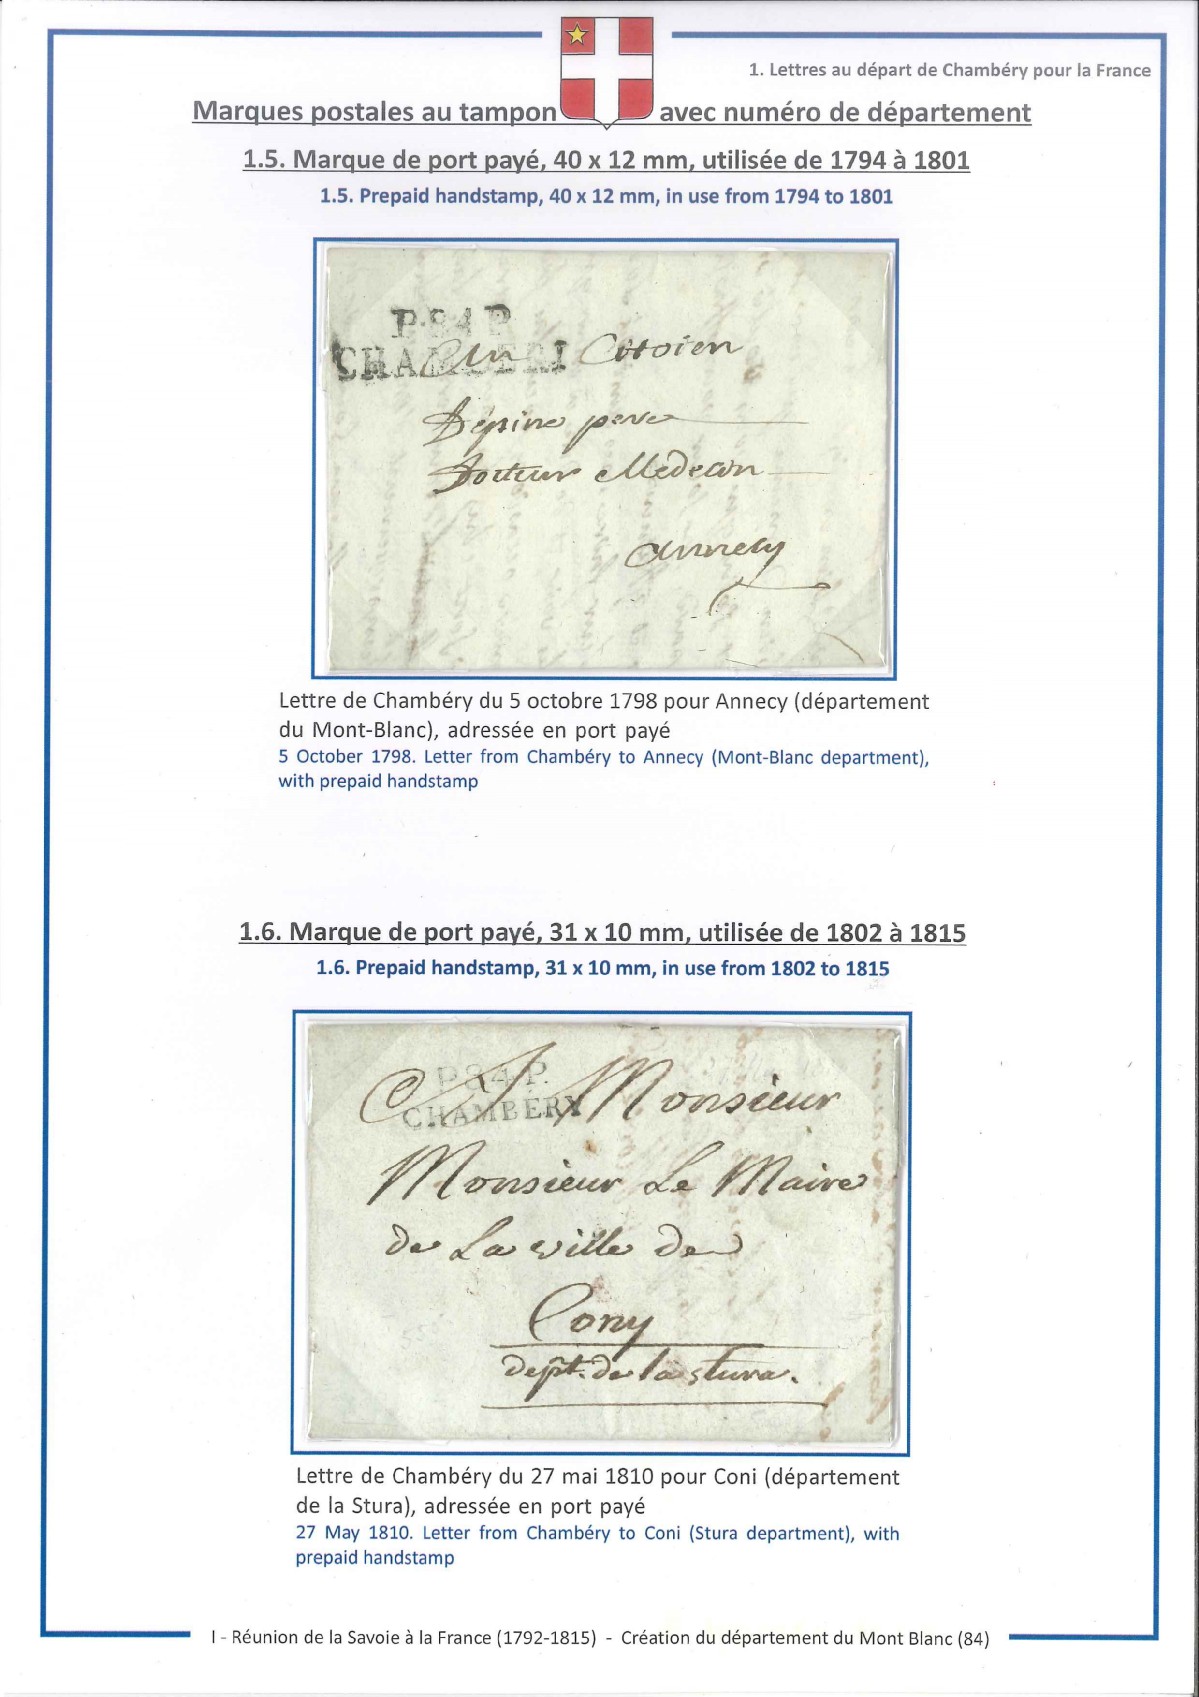 1. Lettres au départ de Chambéry pour la France
Marques postales au tampon avec numéro de département
1.5. Marque de port payé, 40 x 12 mm, utilisée de 1794 à 1801
1.5. Prepaid handstamp, 40 x 12 mm, in use from 1794 to 1801
P.84 P.
CHAMBERI
Citoien
Dépine pere
Docteur Medecin
Annecy
Lettre de Chambéry du 5 octobre 1798 pour Annecy (département
du Mont-Blanc), adressée en port payé
5 October 1798. Letter from Chambéry to Annecy (Mont-Blanc department),
with prepaid handstamp
1.6. Marque de port payé, 31 x 10 mm, utilisée de 1802 à 1815
1.6. Prepaid handstamp, 31 x 10 mm, in use from 1802 to 1815
P.84 P.
CHAMBÉRY
A Monsieur
Monsieur Le Maire
de La ville de
Cony
dept. de la stura.
Lettre de Chambéry du 27 mai 1810 pour Coni (département
de la Stura), adressée en port payé
27 May 1810. Letter from Chambéry to Coni (Stura department), with
prepaid handstamp
I - Réunion de la Savoie à la France (1792-1815) - Création du département du Mont Blanc (84)